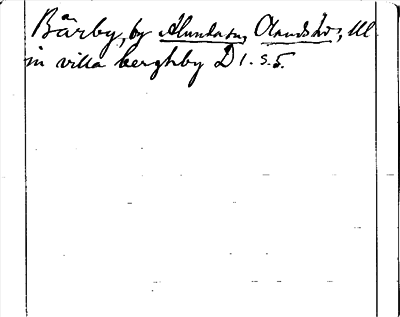 Bärby, by Alunda sn, Olands hd, Ul.
in villa berghby D 1. s. 5.